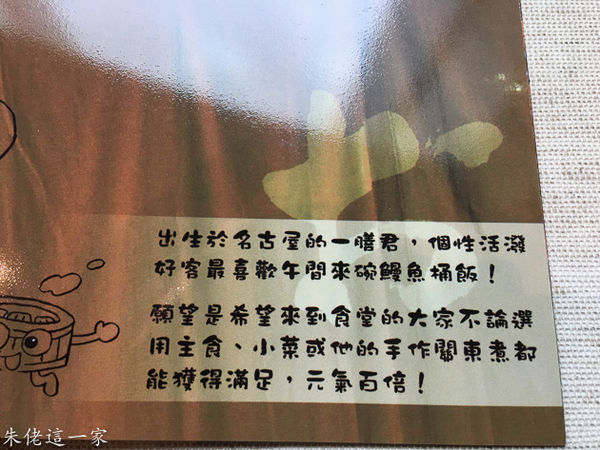 出生於名古屋的一膳君，個性活潑
好客最喜歡午間來碗鰻魚桶飯！
願望是希望來到食堂的大家不論選
用主食、小菜或他的手作關東煮都
能獲得滿足，元氣百倍！
朱佬這一家